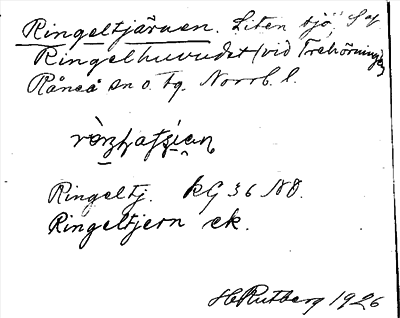 Ringeltjärnen. Liten sjö, S af
Ringelhuvudet (vid Trehörningen)
Råneå sn o. tg. Norrb. l.
Ringeltj. kG 36 NO.
Ringeltjern ek.
H Rutberg 1926